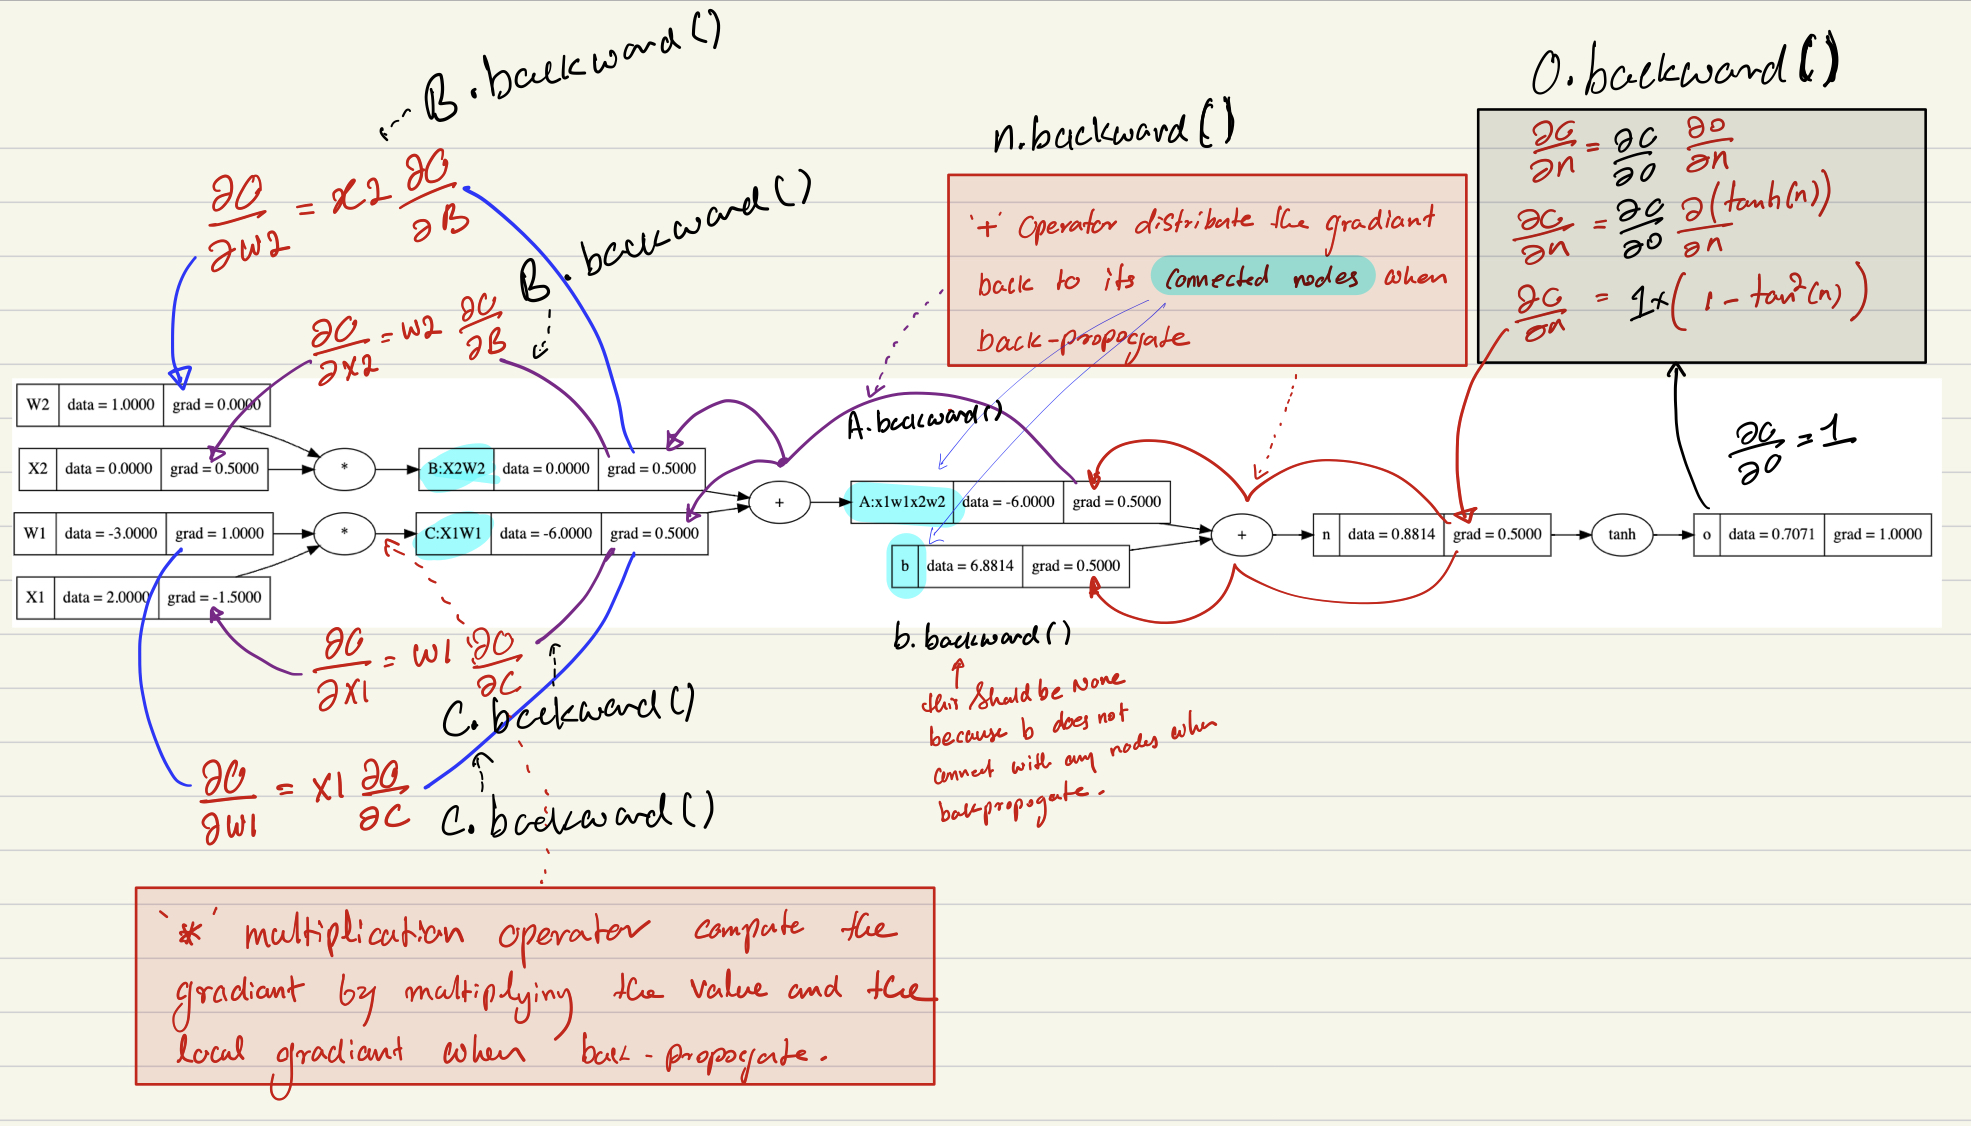 B.backward()
O.backward()
n.backward()
∂O/∂W2 = x2 ∂O/∂B
B.backward()
∂O/∂X2 = W2 ∂O/∂B
'+' Operator distribute the gradiant
back to its connected nodes when
back-propogate
∂O/∂n = ∂O/∂O ∂O/∂n
∂O/∂n = ∂O/∂O ∂(tanh(n))/∂n
∂O/∂n = 1x(1 - tan²(n))
∂O/∂O = 1
W2 data = 1.0000 grad = 0.0000
X2 data = 0.0000 grad = 0.5000
*
B:X2W2 data = 0.0000 grad = 0.5000
W1 data = -3.0000 grad = 1.0000
*
C:X1W1 data = -6.0000 grad = 0.5000
X1 data = 2.0000 grad = -1.5000
+
A.backward()
A:x1w1x2w2 data = -6.0000 grad = 0.5000
b data = 6.8814 grad = 0.5000
+
n data = 0.8814 grad = 0.5000
tanh
o data = 0.7071 grad = 1.0000
∂O/∂X1 = W1 ∂O/∂C
C.backward()
∂O/∂W1 = X1 ∂O/∂C
C.backward()
b.backward()
this should be None
because b does not
connect with any nodes when
backpropogate.
'*' multiplication operator compute the
gradiant by multiplying the value and the
local gradiant when back-propogate.